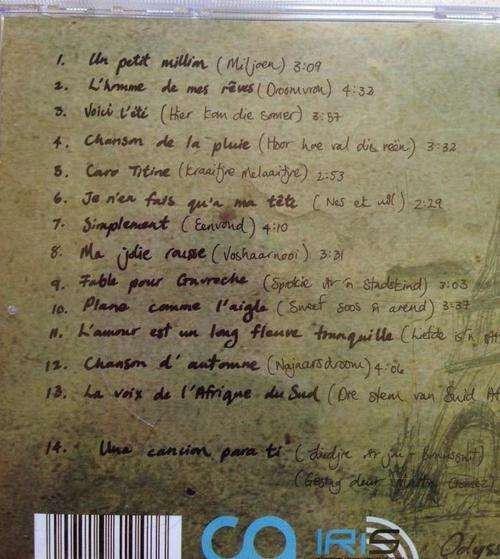 1. Un petit million (Miljoen) 3:09
2. L'homme de mes rêves (Droomvrou) 4:33
3. Voici l'été (Hier kom die somer) 3:57
4. Chanson de la pluie (Hoor hoe val dis reën) 3:32
5. Caro Titine (Kraaitjie Melaaitjie) 2:53
6. Je n'en fais qu'a ma tête (Nes ek wil) 2:29
7. Simplement (Eenvoud) 4:10
8. Ma jolie rousse (Voshaarnooi) 3:31
9. Fable pour Gavroche (Sprokie vir 'n Stadskind) 3:03
10. Plane comme l'aigle (Sweef soos 'n arend) 3:37
11. L'amour est un long fleuve tranquille (Liefde is 'n
12. Chanson d'automne (Najaarsdroom) 4:06
13. La voix de l'Afrique du Sud (Die stem van Suid Af
14. Una cancion para ti (Liedjie vir jou -
(Gesing deur
CO IRIS Odys